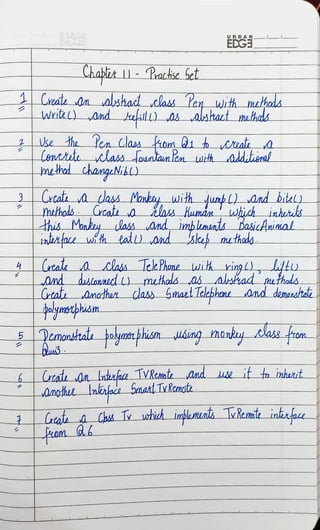 URBAN
EDGE
Chapter 11 - Practise Set
1 Create an abstract class Pen with methods
write() and refill() as abstract methods
2 Use the Pen Class from Q1 to create a
Concrete class fountain Pen with additional
method changeNib()
3 Create a class Monkey with jump() and bite()
methods. Create a class Human which inherits
this Monkey class and implements BasicAnimal
interface with eat() and sleep methods.
4 Create a class TelePhone with ring(), lift()
and disconnect() methods as abstract methods
Create another class Smart Telephone and demonstrate
polymorphism
5 Demonstrate polymorphism using monkey class from
Ques3.
6 Create an Interface TVRemote and use it to inherit
another Interface Smart TVRemote.
7 Create a Class Tv which implements TvRemote interface
from Q6